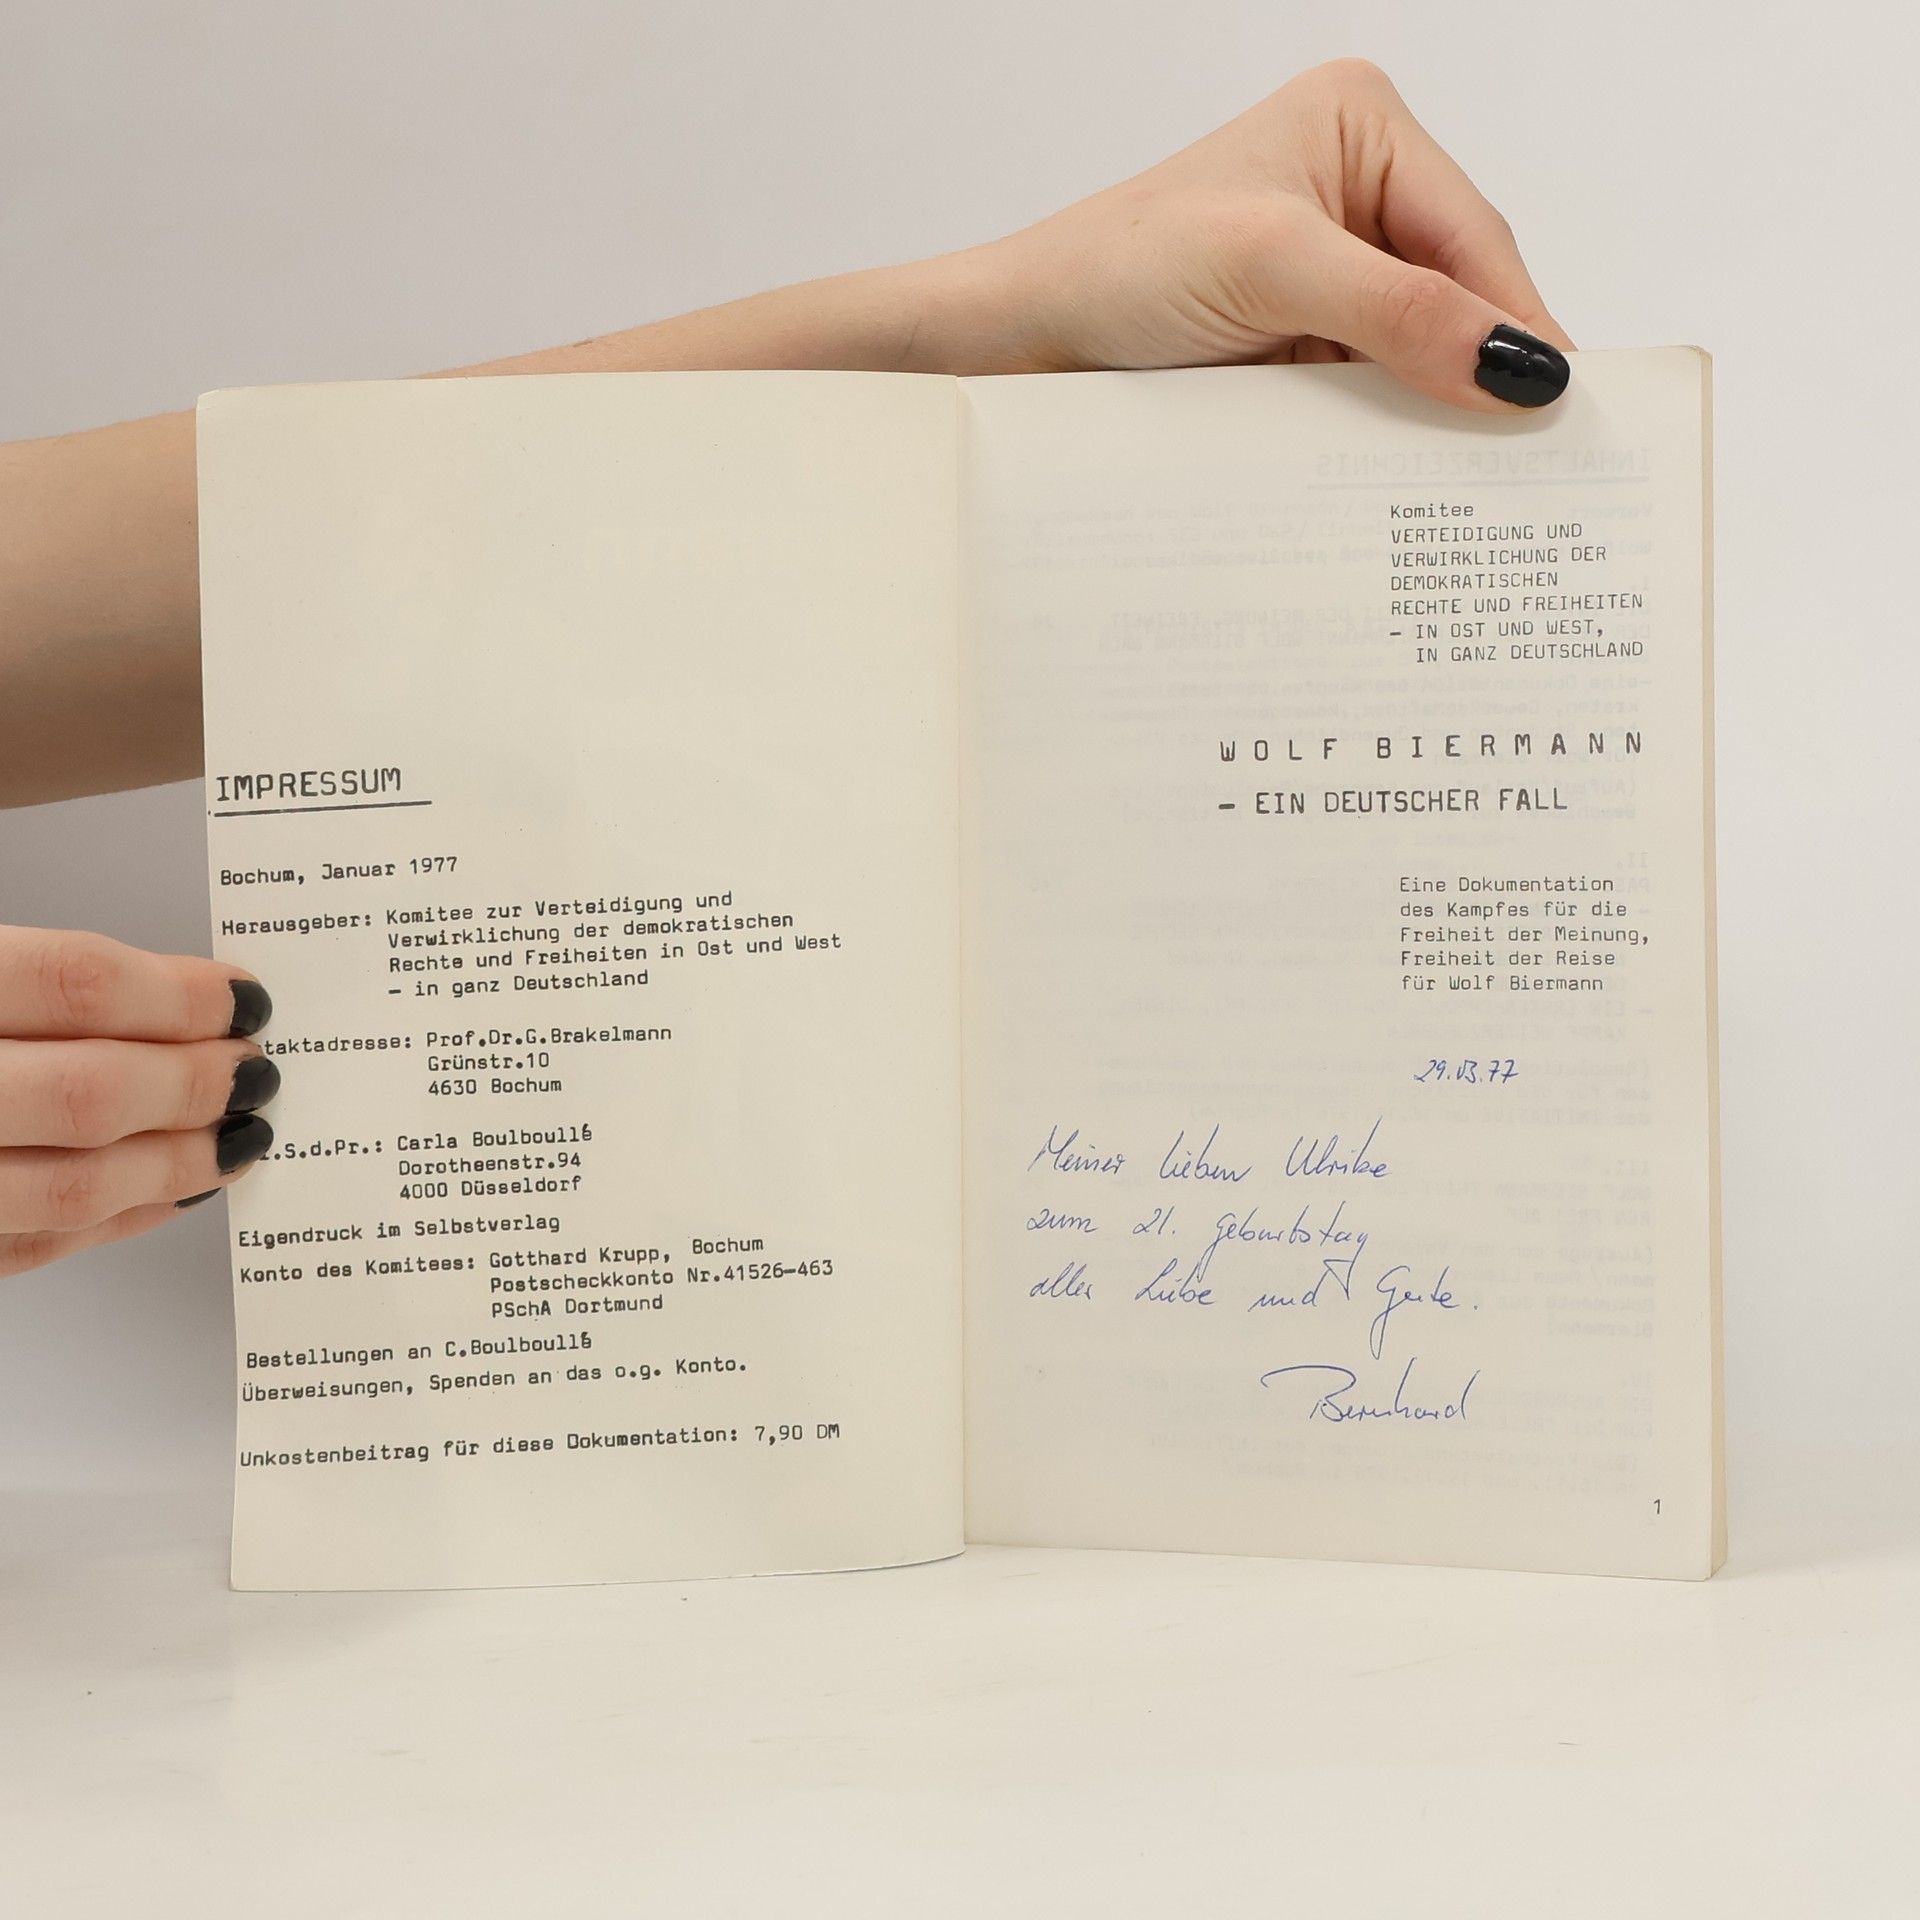 IMPRESSUM
Bochum, Januar 1977
Herausgeber: Komitee zur Verteidigung und
Verwirklichung der demokratischen
Rechte und Freiheiten in Ost und West
– in ganz Deutschland
taktadresse: Prof.Dr.G.Brakelmann
Grünstr.10
4630 Bochum
.S.d.Pr.: Carla Boulboullé
Dorotheenstr.94
4000 Düsseldorf
Eigendruck im Selbstverlag
Konto des Komitees: Gotthard Krupp, Bochum
Postscheckkonto Nr.41526–463
PSchA Dortmund
Bestellungen an C.Boulboullé
Überweisungen, Spenden an das o.g. Konto.
Unkostenbeitrag für diese Dokumentation: 7,90 DM
Komitee
VERTEIDIGUNG UND
VERWIRKLICHUNG DER
DEMOKRATISCHEN
RECHTE UND FREIHEITEN
– IN OST UND WEST,
IN GANZ DEUTSCHLAND
WOLF BIERMANN
– EIN DEUTSCHER FALL
Eine Dokumentation
des Kampfes für die
Freiheit der Meinung,
Freiheit der Reise
für Wolf Biermann
29.03.77
Meiner lieben Ulrike
zum 21. Geburtstag
alles Liebe und Gute.
Bernhard
1